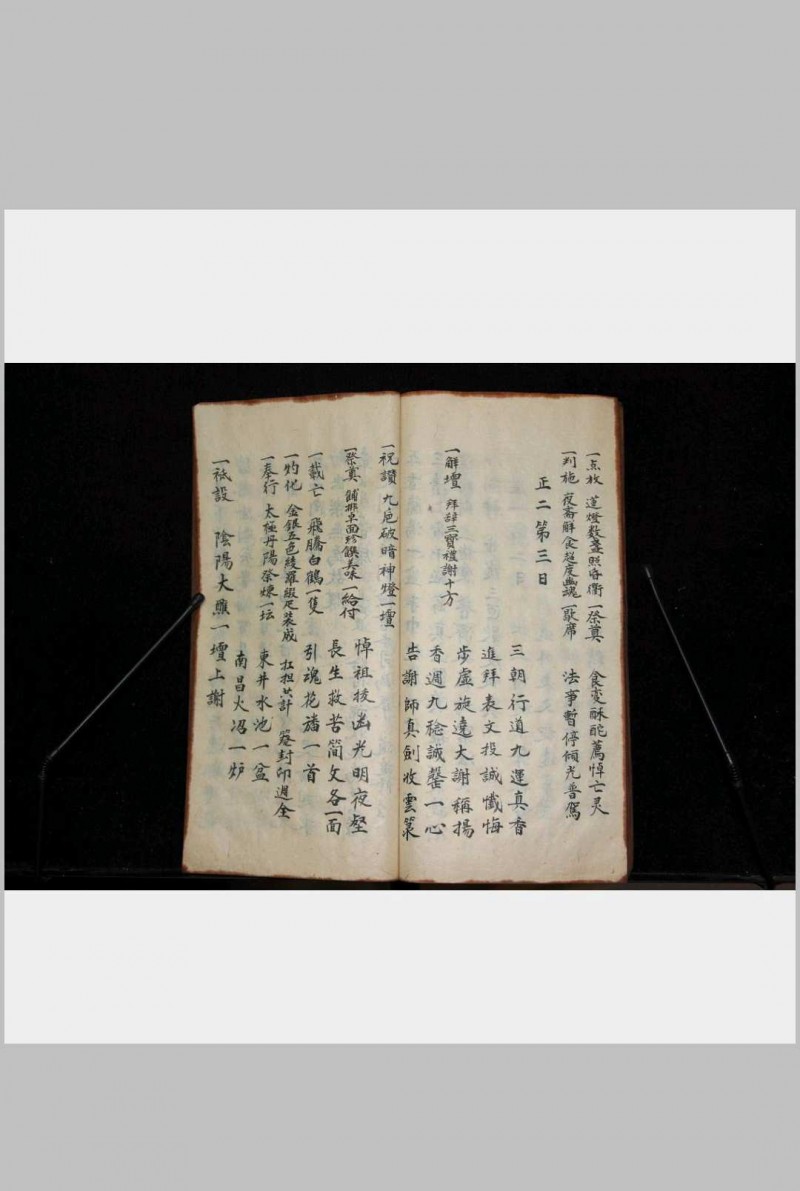 一点放 蓮燈数盞照昏衢 一祭奠 食变酥酡薦悼亡灵
一判施 夜斋斛食超度幽魂 一歇席 法事暫停傾光普駕
正二第三日
三朝行道九運真香
進拜表文投誠懺悔
步虛旋遶大謝稱揚
一解壇 拜辞三寳禮謝十方 香週九稔誠罄一心
告謝師真劍收雲篆
一祝讚 九巵破暗神燈一壇 悼祖接幽光明夜壑
一祭奠 鋪排卓面珍饌美味 一給付 長生救苦簡文各一面
一載亡 飛騰白鶴一隻 引魂花旛一首
一灼化 金銀五色綾羅緞疋装成 扛担共計 籙封印週全
一奉行 太極丹陽祭煉一坛 東井水池一盆
南昌火沼一炉
一祇設 陰陽大醮一壇上謝